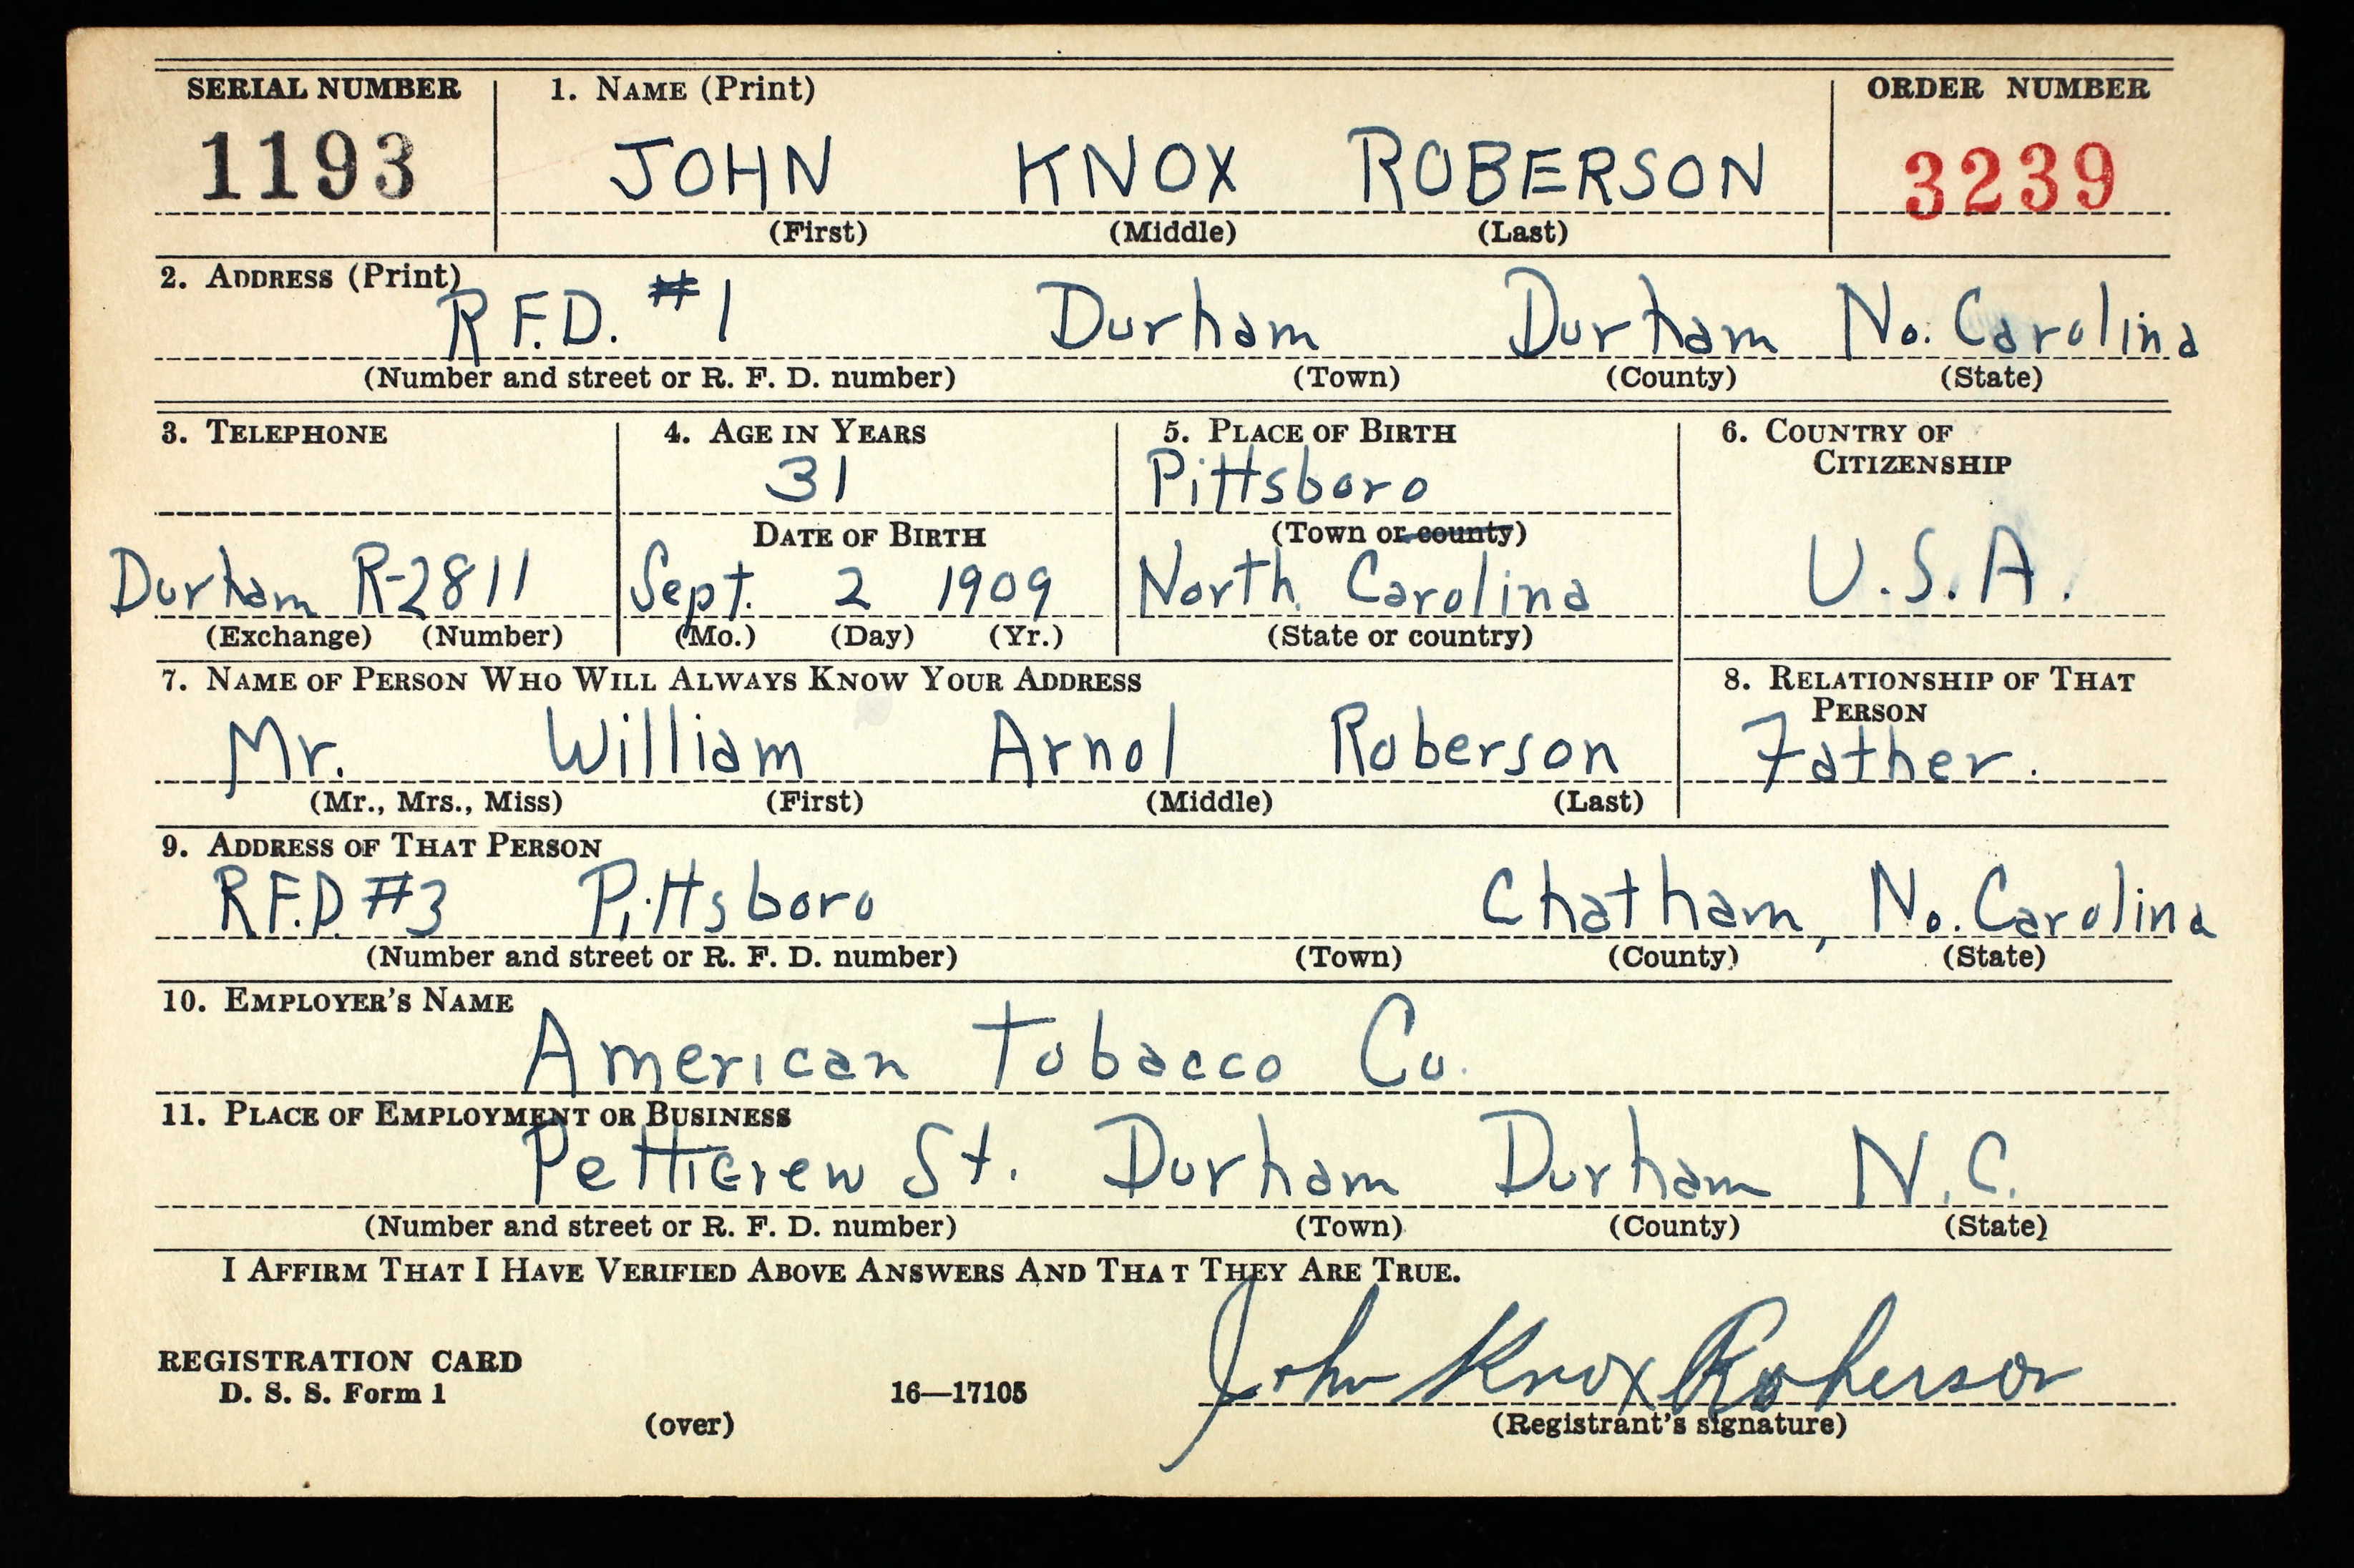 SERIAL NUMBER 1. NAME (Print) ORDER NUMBER
1193 JOHN KNOX ROBERSON 3239
(First) (Middle) (Last)
2. ADDRESS (Print)
R.F.D. #1 Durham Durham No. Carolina
(Number and street or R. F. D. number) (Town) (County) (State)
3. TELEPHONE 4. AGE IN YEARS 5. PLACE OF BIRTH 6. COUNTRY OF
CITIZENSHIP
31 Pittsboro
DATE OF BIRTH (Town or county)
Durham R-2811 Sept. 2 1909 North Carolina U.S.A.
(Exchange) (Number) (Mo.) (Day) (Yr.) (State or country)
7. NAME OF PERSON WHO WILL ALWAYS KNOW YOUR ADDRESS 8. RELATIONSHIP OF THAT
PERSON
Mr. William Arnol Roberson Father.
(Mr., Mrs., Miss) (First) (Middle) (Last)
9. ADDRESS OF THAT PERSON
R.F.D. #3 Pittsboro Chatham, No. Carolina
(Number and street or R. F. D. number) (Town) (County) (State)
10. EMPLOYER'S NAME
American Tobacco Co.
11. PLACE OF EMPLOYMENT OR BUSINESS
Pettigrew St. Durham Durham N.C.
(Number and street or R. F. D. number) (Town) (County) (State)
I AFFIRM THAT I HAVE VERIFIED ABOVE ANSWERS AND THAT THEY ARE TRUE.
John Knox Roberson
REGISTRATION CARD
D. S. S. Form 1 16—17105
(over) (Registrant's signature)